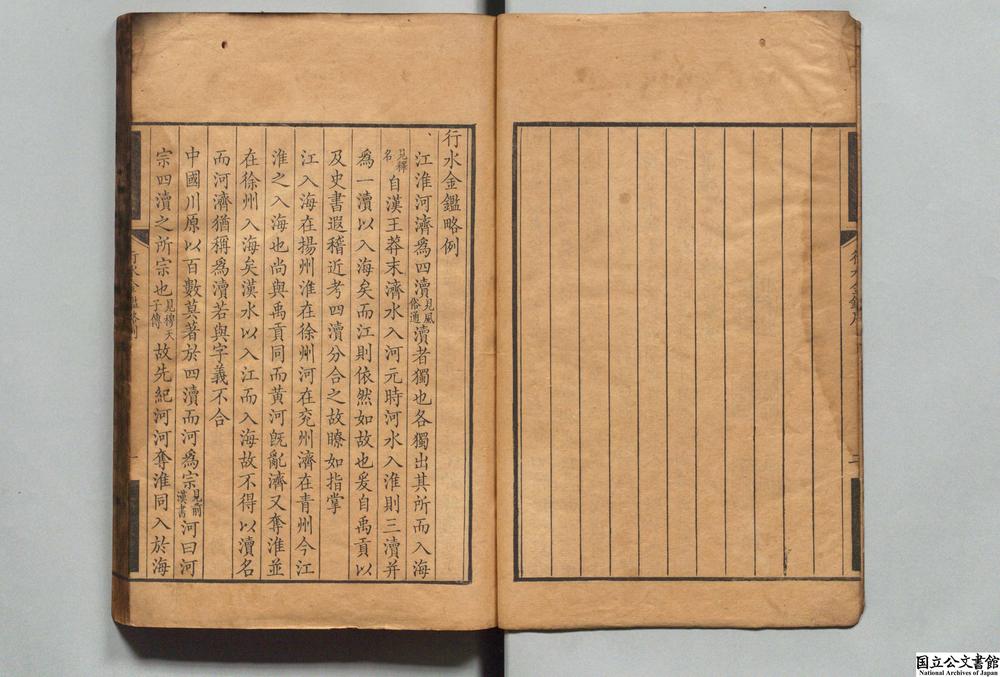 行水金鑑略例
江淮河濟爲四瀆見風俗通瀆者獨也各獨出其所而入海
見釋名自漢王莽末濟水入河元時河水入淮則三瀆并
爲一瀆以入海矣而江則依然如故也爰自禹貢以
及史書遐稽近考四瀆分合之故瞭如指掌
江入海在揚州淮在徐州河在兖州濟在青州今江
淮之入海也尚與禹貢同而黃河旣亂濟又奪淮並
在徐州入海矣漢水以入江而入海故不得以瀆名
而河濟猶稱爲瀆若與字義不合
中國川原以百數莫著於四瀆而河爲宗見前漢書河曰河
宗四瀆之所宗也見穆天子傳故先紀河河奪淮同入於海
行水金鑑
国立公文書館
National Archives of Japan